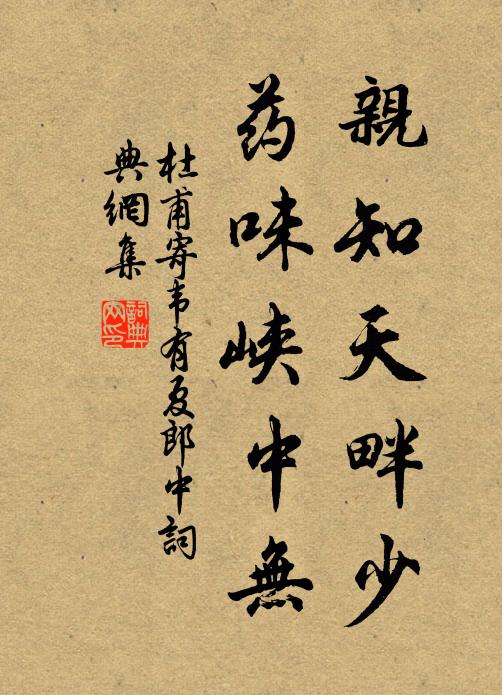 親知天畔少
药味峡中無
杜甫寄韦有夏郎中詞
典網集
詞典網印